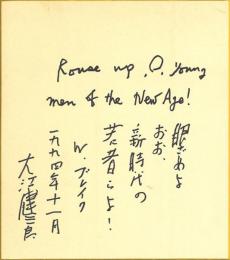 Rouse up, O, Young
men of the New Age!
眼ざめよ
おお、
新時代の
若者らよ!
W.ブレイク
一九九四年十一月
大江健三郎